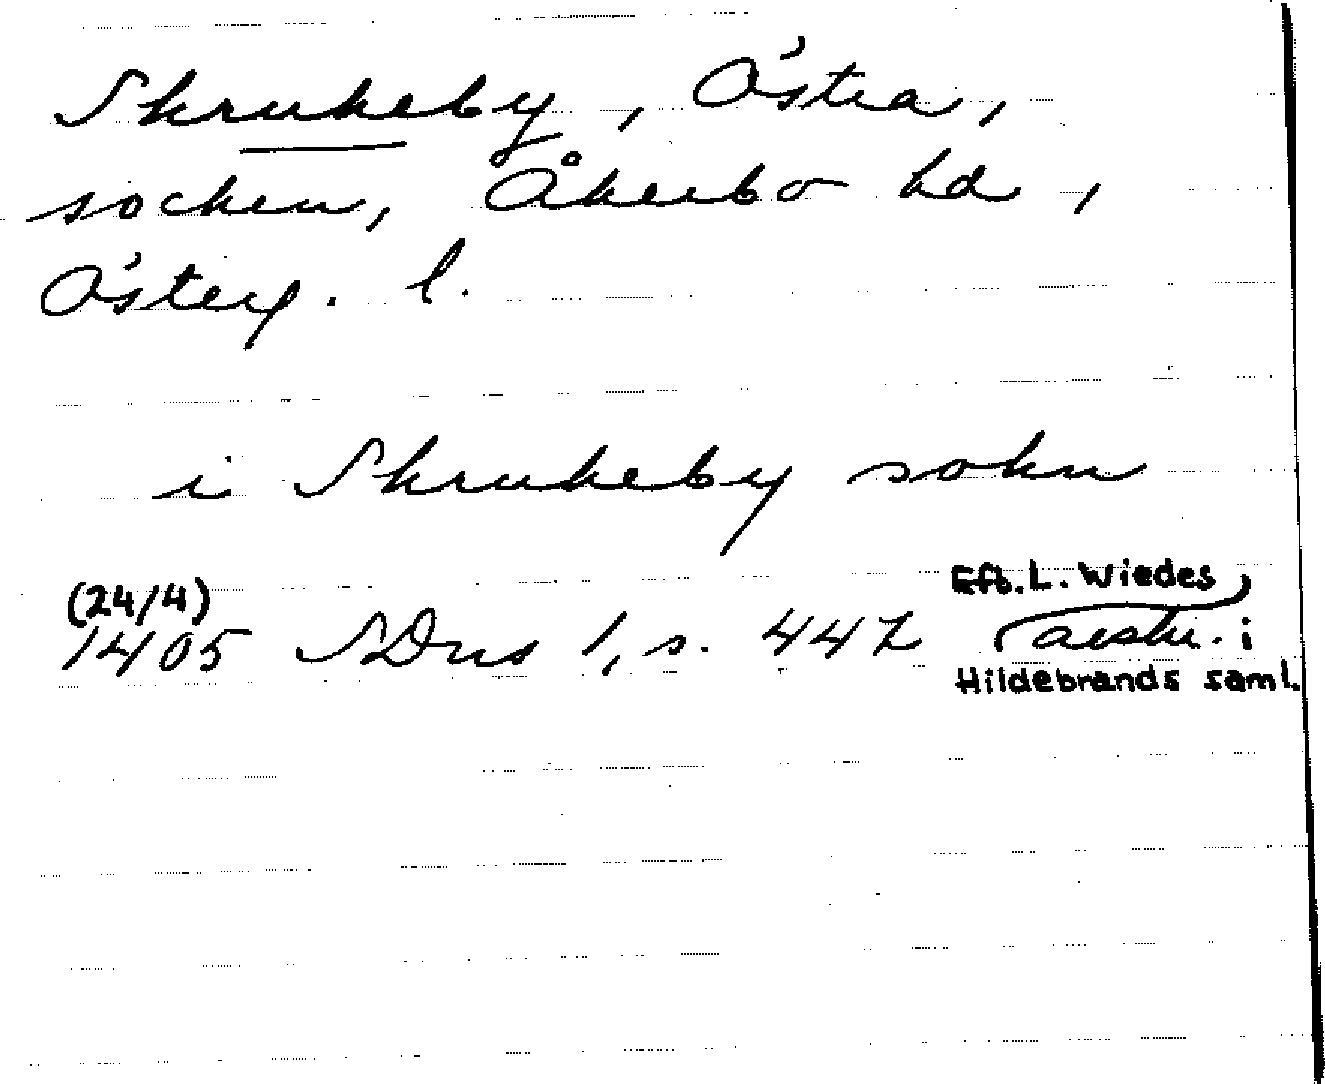 Skrukeby, Östra,
socken, Åkerbo hd,
Österg. l.
i Skrukeby sokn
(24/4)
1405 SDns 1, s. 442
Eft. L. Wiedes
avskr. i
Hildebrands saml.